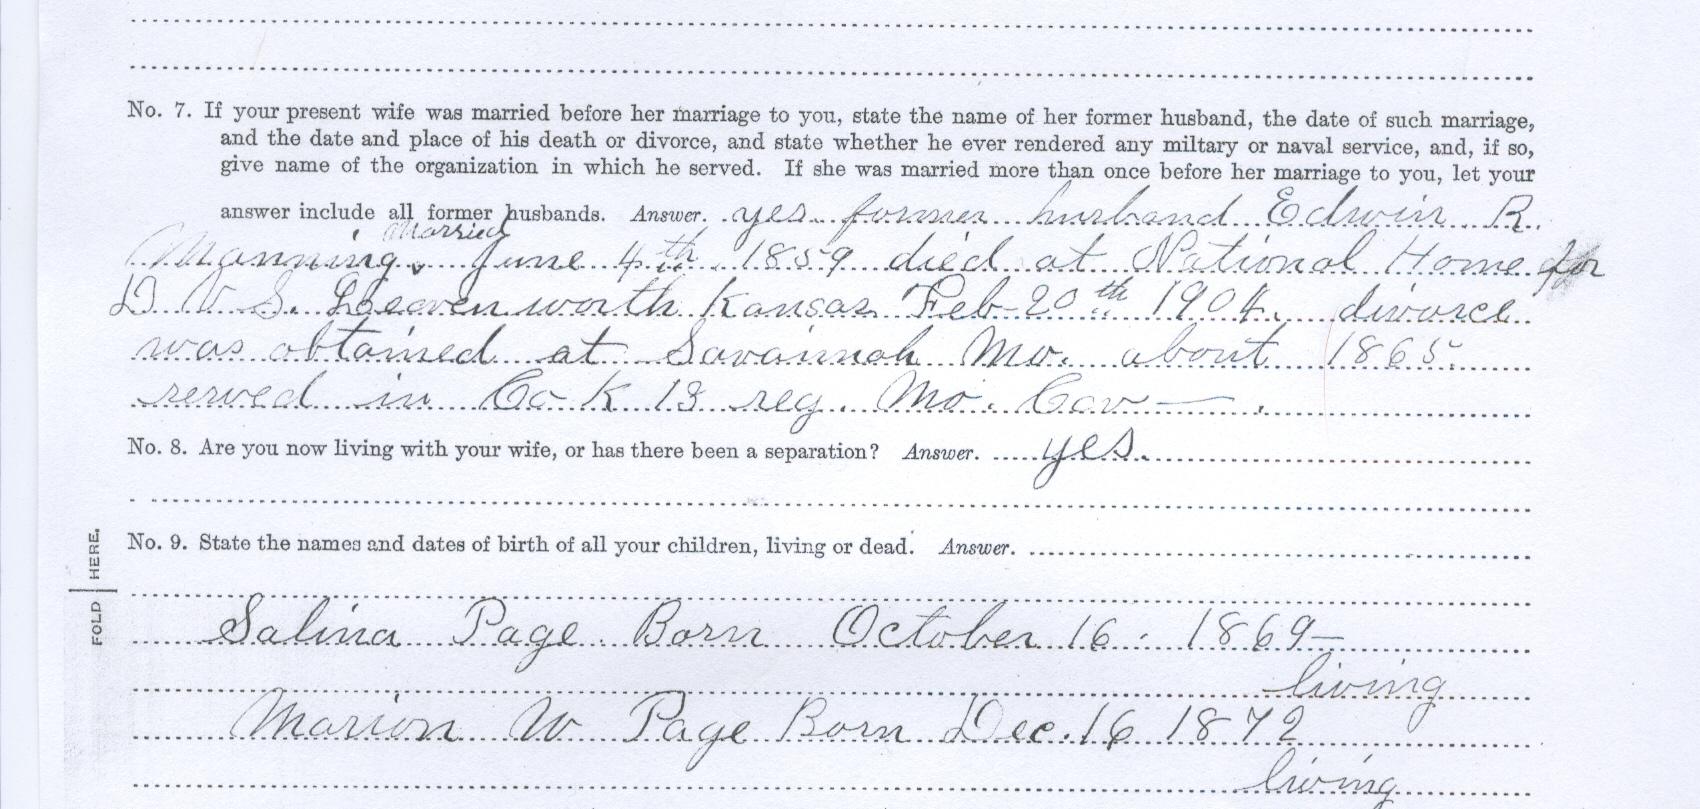 No. 7. If your present wife was married before her marriage to you, state the name of her former husband, the date of such marriage,
and the date and place of his death or divorce, and state whether he ever rendered any miltary or naval service, and, if so,
give name of the organization in which he served. If she was married more than once before her marriage to you, let your
answer include all former husbands. Answer. yes former husband Edwin R.
Married
Manning, June 4th 1859 died at National Home for
D. V. S. Leavenworth Kansas Feb 20th 1904. divorce
was obtained at Savannah Mo. about 1865.
served in Co K 13 reg. Mo. Cav —.
No. 8. Are you now living with your wife, or has there been a separation? Answer. yes.
No. 9. State the names and dates of birth of all your children, living or dead. Answer.
FOLD HERE.
Salina Page Born October 16. 1869—
living
Marion W Page Born Dec. 16 1872
living